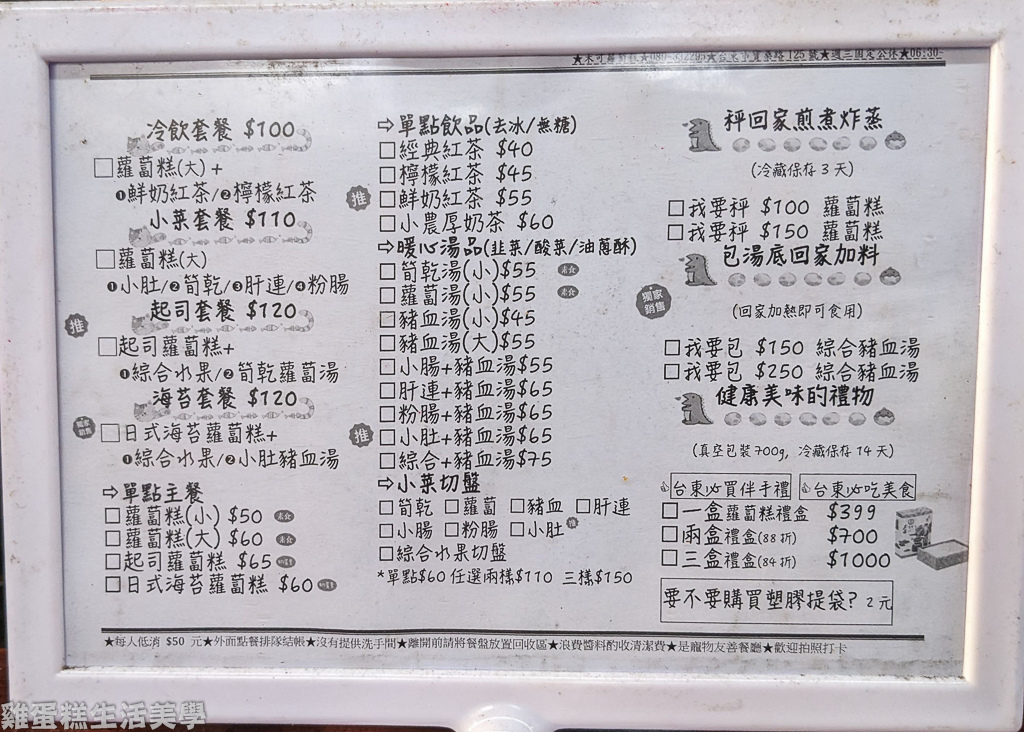 125號★週三固定公休★06:30-
冷飲套餐 $100
□蘿蔔糕(大)+
❶鮮奶紅茶/❷檸檬紅茶
小菜套餐 $110
□蘿蔔糕(大)
❶小肚/❷筍乾/❸肝連/❹粉腸
推
起司套餐 $120
□起司蘿蔔糕+
❶綜合水果/❷筍乾蘿蔔湯
海苔套餐 $120
獨家銷售
□日式海苔蘿蔔糕+
❶綜合水果/❷小肚豬血湯
⇨單點主餐
□蘿蔔糕(小) $50 素食
□蘿蔔糕(大) $60 素食
□起司蘿蔔糕 $65
□日式海苔蘿蔔糕 $60
⇨單點飲品(去冰/無糖)
□經典紅茶 $40
□檸檬紅茶 $45
推 □鮮奶紅茶 $55
□小農厚奶茶 $60
⇨暖心湯品(韭菜/酸菜/油蔥酥)
□筍乾湯(小)$55 素食
□蘿蔔湯(小)$55 素食
□豬血湯(小)$45
□豬血湯(大)$55
□小腸+豬血湯$55
□肝連+豬血湯$65
□粉腸+豬血湯$65
推 □小肚+豬血湯$65
□綜合+豬血湯$75
⇨小菜切盤
□筍乾 □蘿蔔 □豬血 □肝連
□小腸 □粉腸 □小肚 推
□綜合水果切盤
*單點$60 任選兩樣$110 三樣$150
秤回家煎煮炸蒸
(冷藏保存3天)
□我要秤 $100 蘿蔔糕
□我要秤 $150 蘿蔔糕
包湯底回家加料
獨家銷售
(回家加熱即可食用)
□我要包 $150 綜合豬血湯
□我要包 $250 綜合豬血湯
健康美味的禮物
(真空包裝700g, 冷藏保存14天)
台東必買伴手禮 台東必吃美食
□一盒蘿蔔糕禮盒 $399
□兩盒禮盒(88折) $700
□三盒禮盒(84折) $1000
要不要購買塑膠提袋? 2元
★每人低消 $50 元★外面點餐排隊結帳★沒有提供洗手間★離開前請將餐盤放置回收區★浪費醬料酌收清潔費★是寵物友善餐廳★歡迎拍照打卡
雞蛋糕生活美學